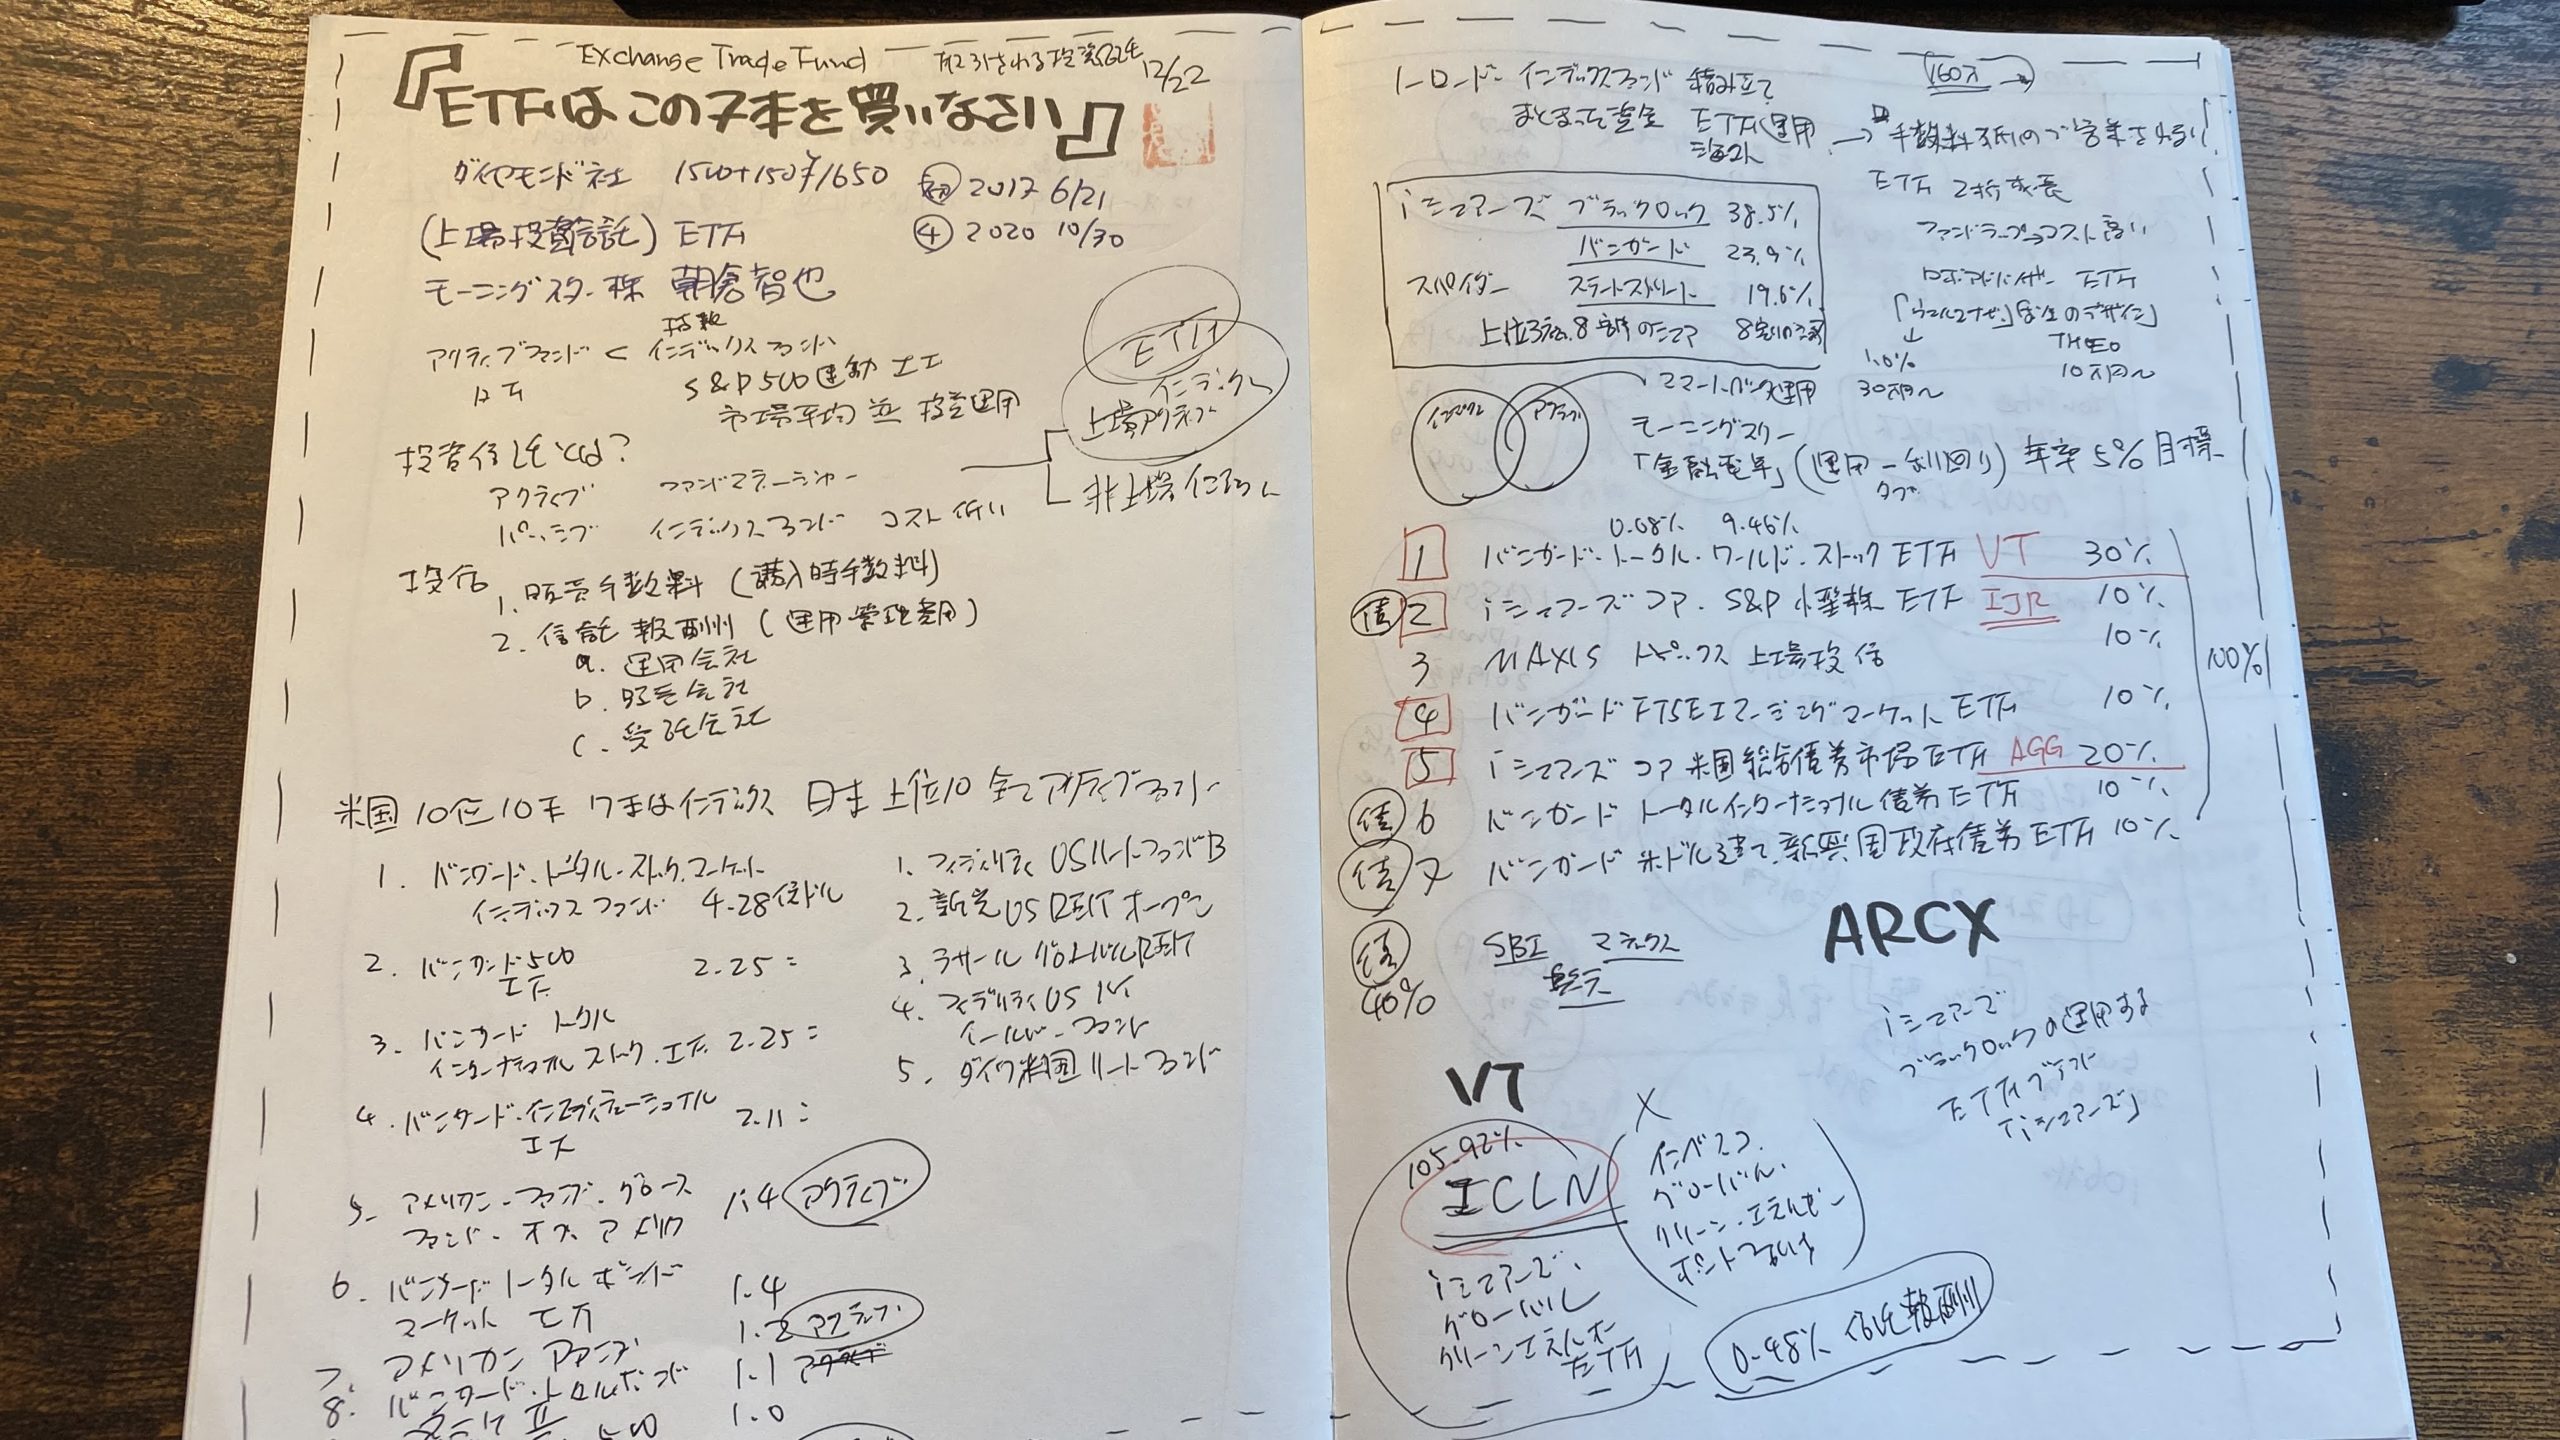 Exchange Trade Fund
12/22
『ETFはこの7本を買いなさい』
ダイヤモンド社 1500+150 ¥1650 初 2017 6/21
(上場投資信託) ETF ④ 2020 10/30
モーニングスター・株 朝倉智也
指数
アクティブファンド < インデックスファンド
日本 S&P500運動
市場平均 並 投資運用
ETF
インデックス
上場アクティブ
非上場
投資信託とは?
アクティブ ファンドマネージャー
パッシブ インデックスファンド コスト低い
投信
1. 販売手数料 (購入時手数料)
2. 信託報酬 (運用管理費用)
a. 運用会社
b. 販売会社
c. 受託会社
米国 10位10本 7本はインデックス 日本 上位10 全てアクティブ
1. バンガード・トータル・ストック・マーケット
インデックスファンド 4.28億ドル
2. バンガード500 2.25 〃
3. バンガード トータル
インターナショナル ストック・ 2.25 〃
4. バンガード・インスティテューショナル 2.11 〃
5. アメリカン・ファンド・グロース 1.4 アクティブ
ファンド・オブ・アメリカ
6. バンガード トータル ボンド 1.4
マーケット
1.2 アクティブ
7. アメリカン ファンド 1.1
8. バンガード・トータルボンド 1.0
500
1. フィデリティ USリートファンドB
2. 新光 US REIT オープン
3. ラサール グローバルREIT
4. フィデリティ US ハイ
イールド・ファンド
5. ダイワ米国リートファンド
ノーロード インデックスファンド 積み立て
まとまった資金 ETF運用
海外
→ 手数料 低いので営業されない
ETF 2桁成長
ファンドラップ→コスト高い
ロボアドバイザー ETF
「ウェルスナビ」「お金のデザイン」
↓
1.0% THEO
30万円〜 10万円〜
iシェアーズ ブラックロック 38.5%
バンガード 23.9%
スパイダー ステートストリート 19.6%
上位3社 8割のシェア
インデックス アクティブ
スマートベータ運用
モーニングスター
「金融電卓」 (運用-利回り) 年率5%目標
タブ
0.08% 9.46%
1 バンガード・トータル・ワールド・ストック ETF VT 30%
債 2 iシェアーズ コア・S&P 小型株 ETF IJR 10%
3 MAXIS トピックス 上場投信 10%
4 バンガード FTSE エマージングマーケット ETF 10%
5 iシェアーズ コア 米国総合債券市場 ETF AGG 20%
債 6 バンガード トータルインターナショナル 債券 ETF 10%
債 7 バンガード 米ドル建て 新興国政府債券 ETF 10%
100%
債
40%
SBI マネックス
楽天
ARCX
iシェアーズ
ブラックロックの運用する
ETFブランド
「iシェアーズ」
VT
105.92%
ICLN
iシェアーズ・
グローバル
クリーンエネルギー
ETF
×
インベスコ・
グローバル・
クリーン・エネルギー
0.48% 信託報酬